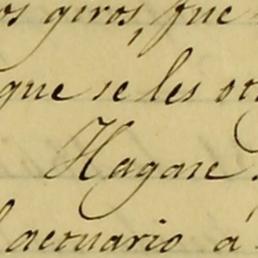 os giros, fue
que se les ot
Hagase
actuario á